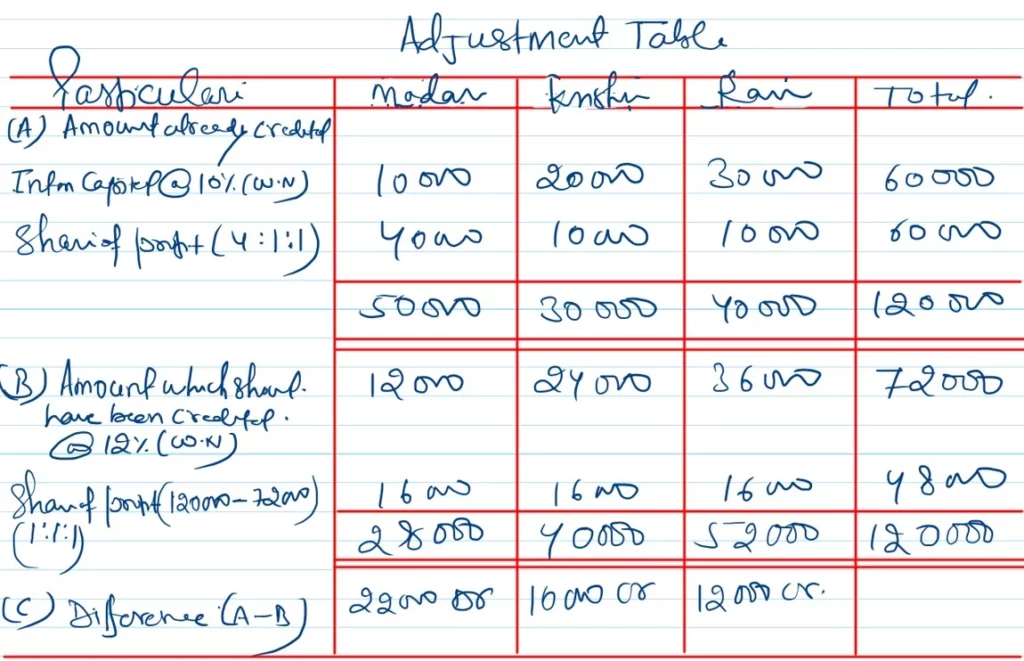 Adjustment Table
Particulars Madan Krishn Ravi Total.
(A) Amount already credited
Int on Capital @ 10% (W.N) 10000 20000 30000 60000
Share of profit (4:1:1) 40000 10000 10000 60000
50000 30000 40000 120000
(B) Amount which should 12000 24000 36000 72000
have been credited.
@ 12% (W.N)
Share of profit (120000-72000) 16000 16000 16000 48000
(1:1:1) 28000 40000 52000 120000
(C) Difference (A-B) 22000 Dr 10000 Cr 12000 Cr.